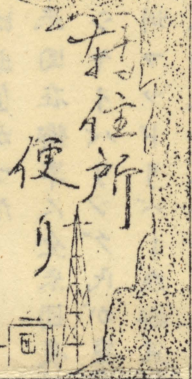 轉住所
便り